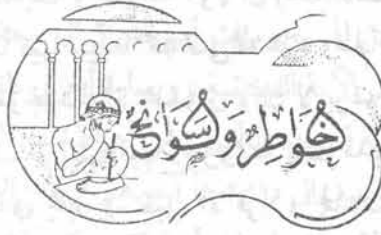 خَوَاطِر وَسَوَانح